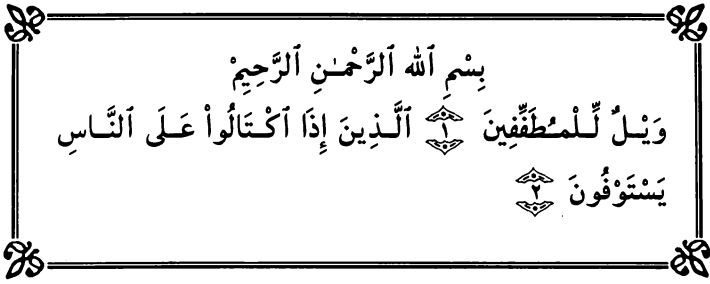 بِسْمِ ٱللَّهِ ٱلرَّحْمَٰنِ ٱلرَّحِيمِ
وَيْلٌ لِّلْمُطَفِّفِينَ ١ ٱلَّذِينَ إِذَا ٱكْتَالُوا۟ عَلَى ٱلنَّاسِ
يَسْتَوْفُونَ ٢